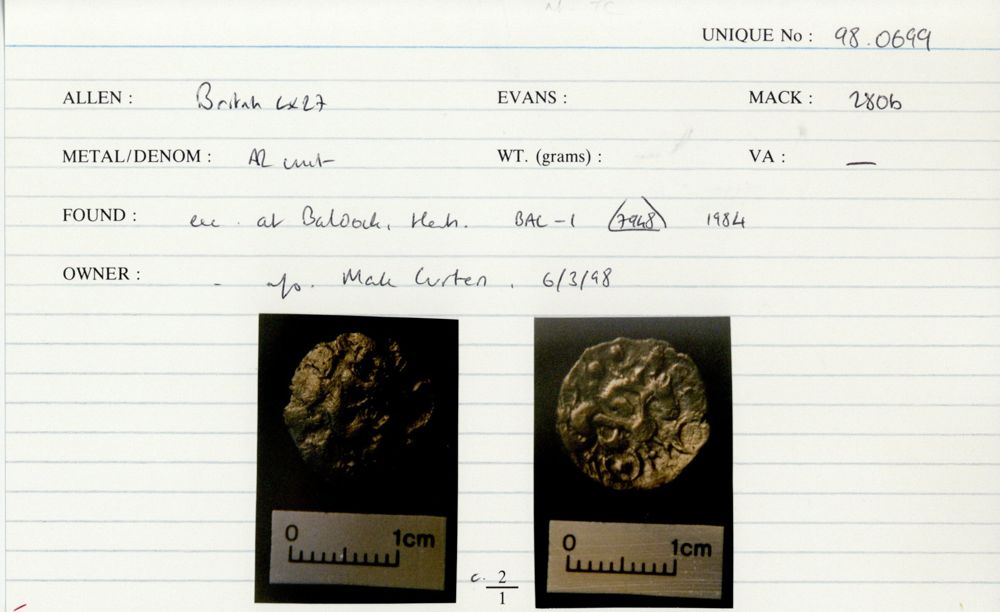 UNIQUE No : 98.0699
ALLEN : British LX27 EVANS : MACK : 280b
METAL/DENOM : AR unit WT. (grams) : VA : —
FOUND : exc. at Baldock, Herts. BAL-1 (7948) 1984
OWNER : - Mark Curteis, 6/3/98
0 1cm
0 1cm
c. 2
1